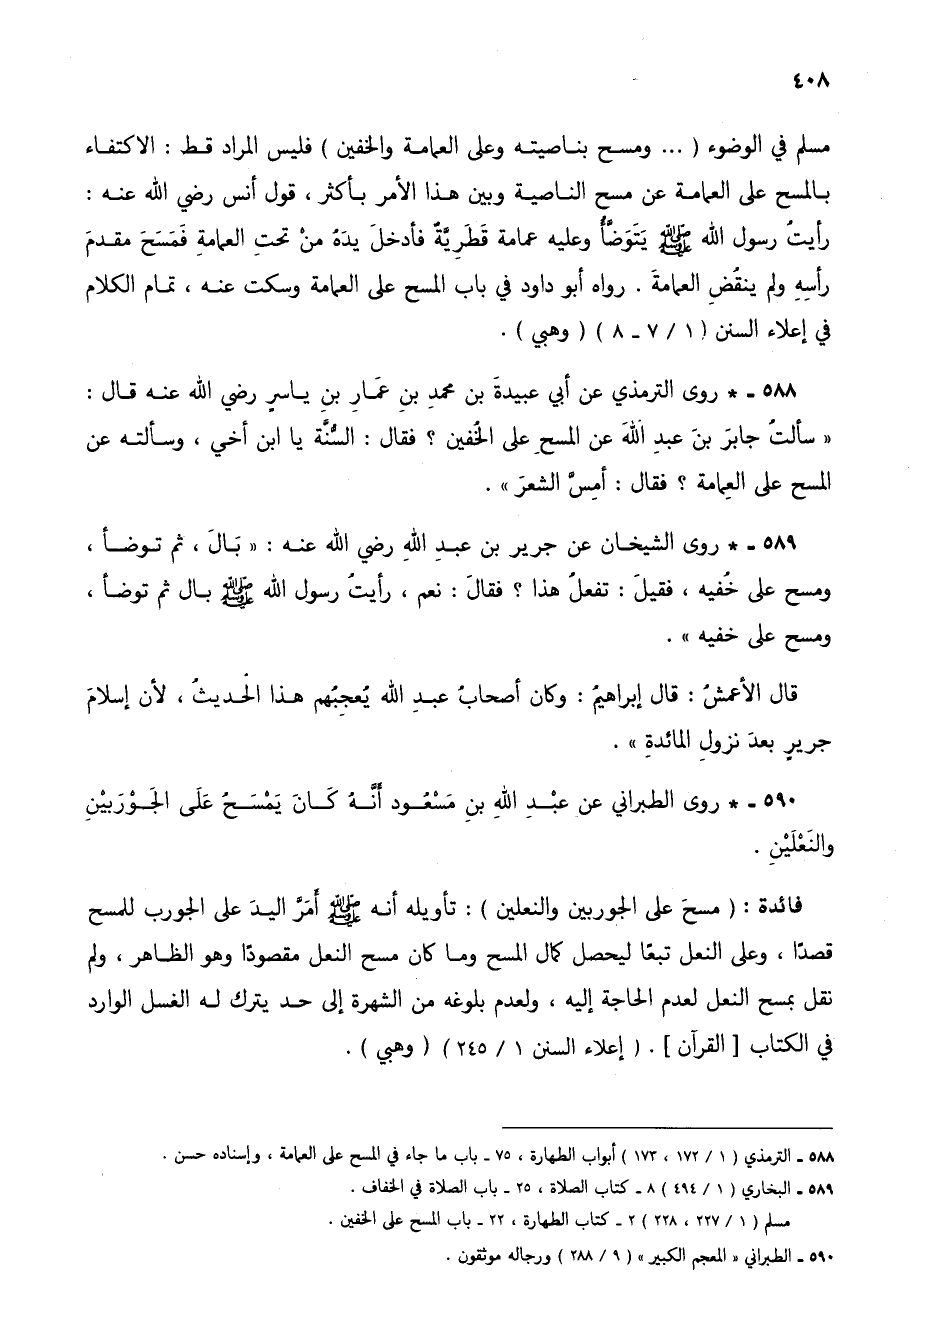 ٤٠٨
مسلم في الوضوء ( ... ومسح بناصيته وعلى العمامة والخفين ) فليس المراد قط : الاكتفاء
بالمسح على العمامة عن مسح الناصية وبين هذا الأمر بأكثر ، قول أنس رضي الله عنه :
رأيتُ رسول الله ﷺ يَتَوَضَّأُ وعليه عمامة قَطَرِيَّةٌ فأدخلَ يدَهُ منْ تحتِ العمامةِ فَمَسَحَ مقدمَ
رأسِهِ ولم ينقُضِ العمامةَ . رواه أبو داود في باب المسح على العمامة وسكت عنه ، تمام الكلام
في إعلاء السنن ( ١ / ٧ ـ ٨ ) ( وهبي ) .
٥٨٨ ـ * روى الترمذي عن أبي عبيدةَ بن محمدِ بنِ عَمَّارِ بنِ ياسرٍ رضي الله عنه قال :
« سألتُ جابرَ بنَ عبدِ اللهَ عن المسحِ على الخُفين ؟ فقال : السُّنَّة يا ابن أخي ، وسألته عن
المسح على العِمامة ؟ فقال : أمِسَّ الشعرَ » .
٥٨٩ ـ * روى الشيخان عن جرير بن عبدِ اللهِ رضي الله عنه : « بَالَ ، ثم توضأ ،
ومسح على خُفيه ، فقيلَ : تفعلُ هذا ؟ فقالَ : نعم ، رأيتُ رسول الله ﷺ بال ثم توضأ ،
ومسح على خفيه » .
قال الأعمشُ : قال إبراهيمُ : وكان أصحابُ عبدِ الله يُعجِبُهم هذا الحديثُ ، لأن إسلامَ
جريرٍ بعدَ نزولِ المائدةِ » .
٥٩٠ ـ * روى الطبراني عن عبْدِ اللهِ بنِ مَسْعُود أَنَّهُ كَانَ يَمْسَحُ عَلَى الجَوْرَبَيْنِ
والنَعْلَيْنِ .
فائدة : ( مسحَ على الجوربين والنعلين ) : تأويله أنه ﷺ أَمَرَّ اليدَ على الجورب للمسح
قصدًا ، وعلى النعل تبعًا ليحصل كمال المسح وما كان مسح النعل مقصودًا وهو الظاهر ، ولم
نقل بمسح النعل لعدم الحاجة إليه ، ولعدم بلوغه من الشهرة إلى حد يترك له الغسل الوارد
في الكتاب [ القرآن ] . ( إعلاء السنن ١ / ٢٤٥ ) ( وهبي ) .
٥٨٨ ـ الترمذي ( ١ / ١٧٢ ، ١٧٣ ) أبواب الطهارة ، ٧٥ ـ باب ما جاء في المسح على العمامة ، وإسناده حسن .
٥٨٩ ـ البخاري ( ١ / ٤٩٤ ) ٨ ـ كتاب الصلاة ، ٢٥ ـ باب الصلاة في الخفاف .
مسلم ( ١ / ٢٢٧ ، ٢٢٨ ) ٢ ـ كتاب الطهارة ، ٢٢ ـ باب المسح على الخفين .
٥٩٠ ـ الطبراني « المعجم الكبير » ( ٩ / ٢٨٨ ) ورجاله موثقون .